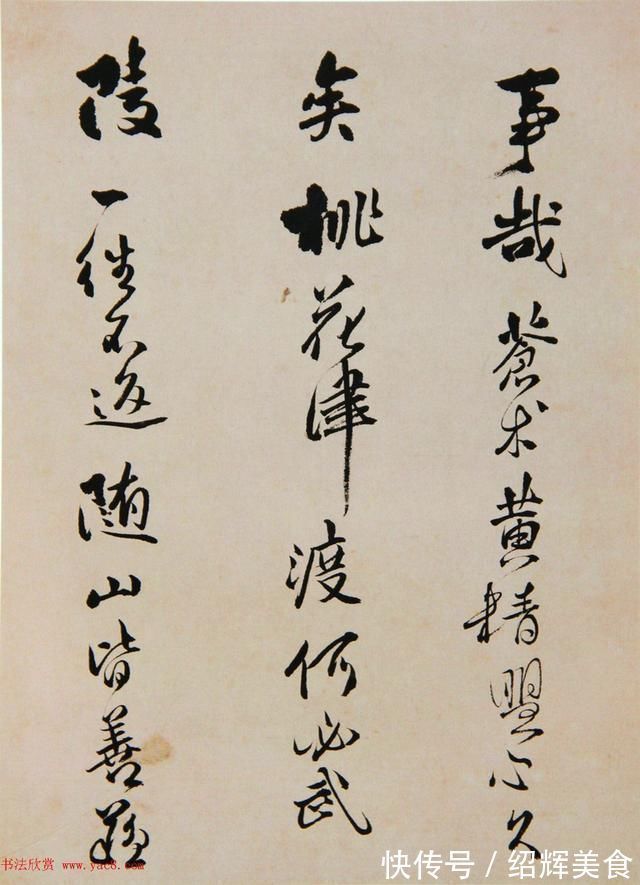 事哉蒼术黄精盟心久
矣桃花津渡何必武
陵一往不返随山皆善
书法欣赏 www.yac8.com
快传号／绍辉美食